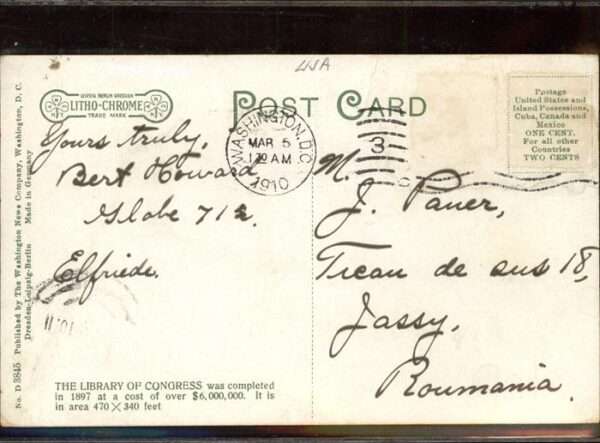 USA
LEIPZIG BERLIN DRESDEN
LITHO-CHROME
TRADE MARK
POST CARD
WASHINGTON, D.C.
MAR 5
1910
3
C
Postage
United States and
Island Possessions,
Cuba, Canada and
Mexico
ONE CENT.
For all other
Countries
TWO CENTS
Yours truly,
Bert Howard
Globe 712.
Elfriede.
M.
J. Pauer,
Ticau de sus 18,
Jassy,
Roumania.
THE LIBRARY OF CONGRESS was completed
in 1897 at a cost of over $6,000,000. It is
in area 470 X 340 feet
No. D 3845 Published by The Washington News Company, Washington, D. C.
Dresden-Leipzig-Berlin Made in Germany